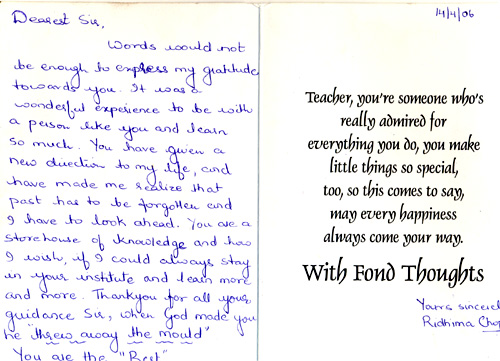 Dearest Sir,
Words would not
be enough to express my gratitude
towards you. It was a
wonderful experience to be with
a person like you and learn
so much. You have given a
new direction to my life, and
have made me realize that
past has to be forgotten and
I have to look ahead. You are a
storehouse of knowledge and how
I wish, if I could always stay
in your institute and learn more
and more. Thankyou for all your
guidance Sir, when God made you
he "threw away the mould"
You are the "Best"
14/4/06
Teacher, you're someone who's
really admired for
everything you do, you make
little things so special,
too, so this comes to say,
may every happiness
always come your way.
With Fond Thoughts
Yours
Ridhima